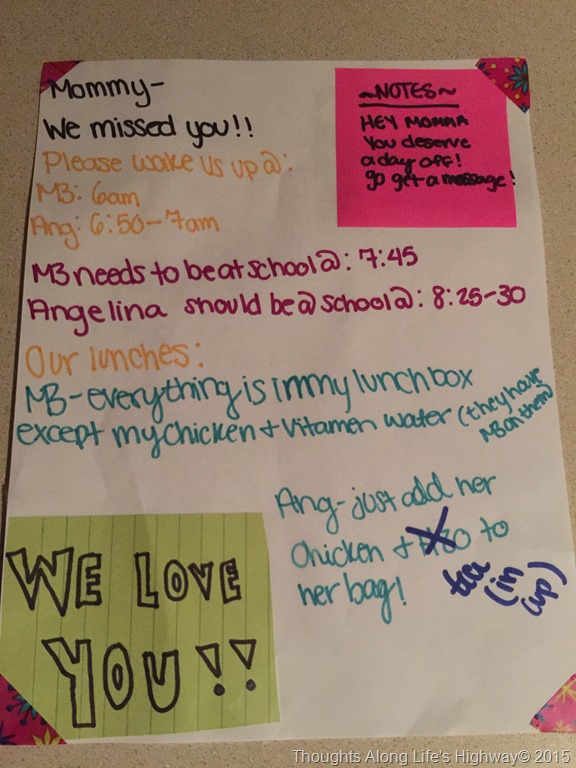 Mommy-
We missed you!!
Please wake us up @:
MB: 6am
Ang: 6:50-7am
MB needs to be at school @: 7:45
Angelina should be @ school @: 8:25-30
Our lunches:
MB-everything is in my lunch box
except my chicken + Vitamen water (they have
MB on them)
Ang-just add her
chicken + to
her bag!
tea
(in
cup)
~NOTES~
HEY MOMMA
You deserve
a day OFF!
go get a message!
WE LOVE
YOU!!
Thoughts Along Life's Highway© 2015